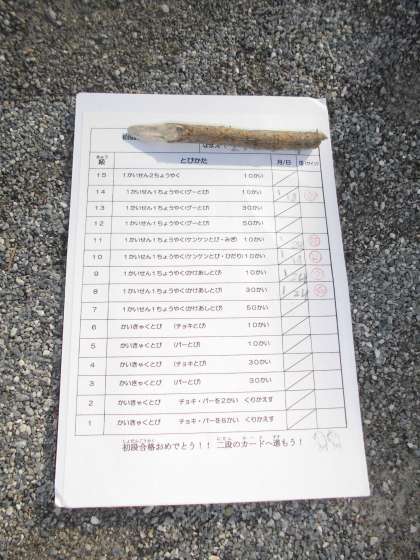 きゅう
級 とびかた 月/日 印(サイン)
15 1かいせん2ちょうやく 10かい
14 1かいせん1ちょうやく(グーとび) 10かい
13 1かいせん1ちょうやく(グーとび) 30かい
12 1かいせん1ちょうやく(グーとび) 50かい
11 1かいせん1ちょうやく(ケンケンとび・みぎ) 10かい
10 1かいせん1ちょうやく(ケンケンとび・ひだり) 10かい
9 1かいせん1ちょうやく(かけあしとび) 10かい
8 1かいせん1ちょうやく(かけあしとび) 30かい
7 1かいせん1ちょうやく(かけあしとび) 50かい
6 かいきゃくとび (チョキとび) 10かい
5 かいきゃくとび (パーとび) 10かい
4 かいきゃくとび (チョキとび) 30かい
3 かいきゃくとび (パーとび) 30かい
2 かいきゃくとび チョキ・パーを2かい くりかえす
1 かいきゃくとび チョキ・パーを5かい くりかえす
初段合格おめでとう!! 二段のカードへ進もう!